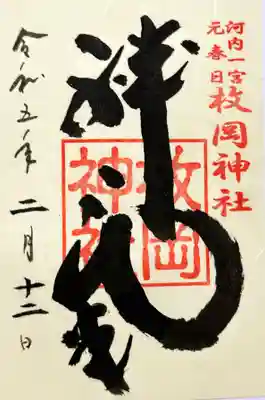 河内一宮
元春日
枚岡神社
枚岡
神社
令和五年二月十二日